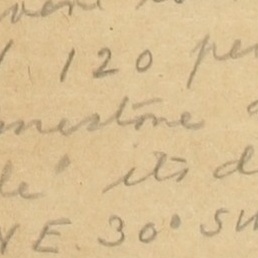 120 pe
mestone
le" its d
NE 30° SW